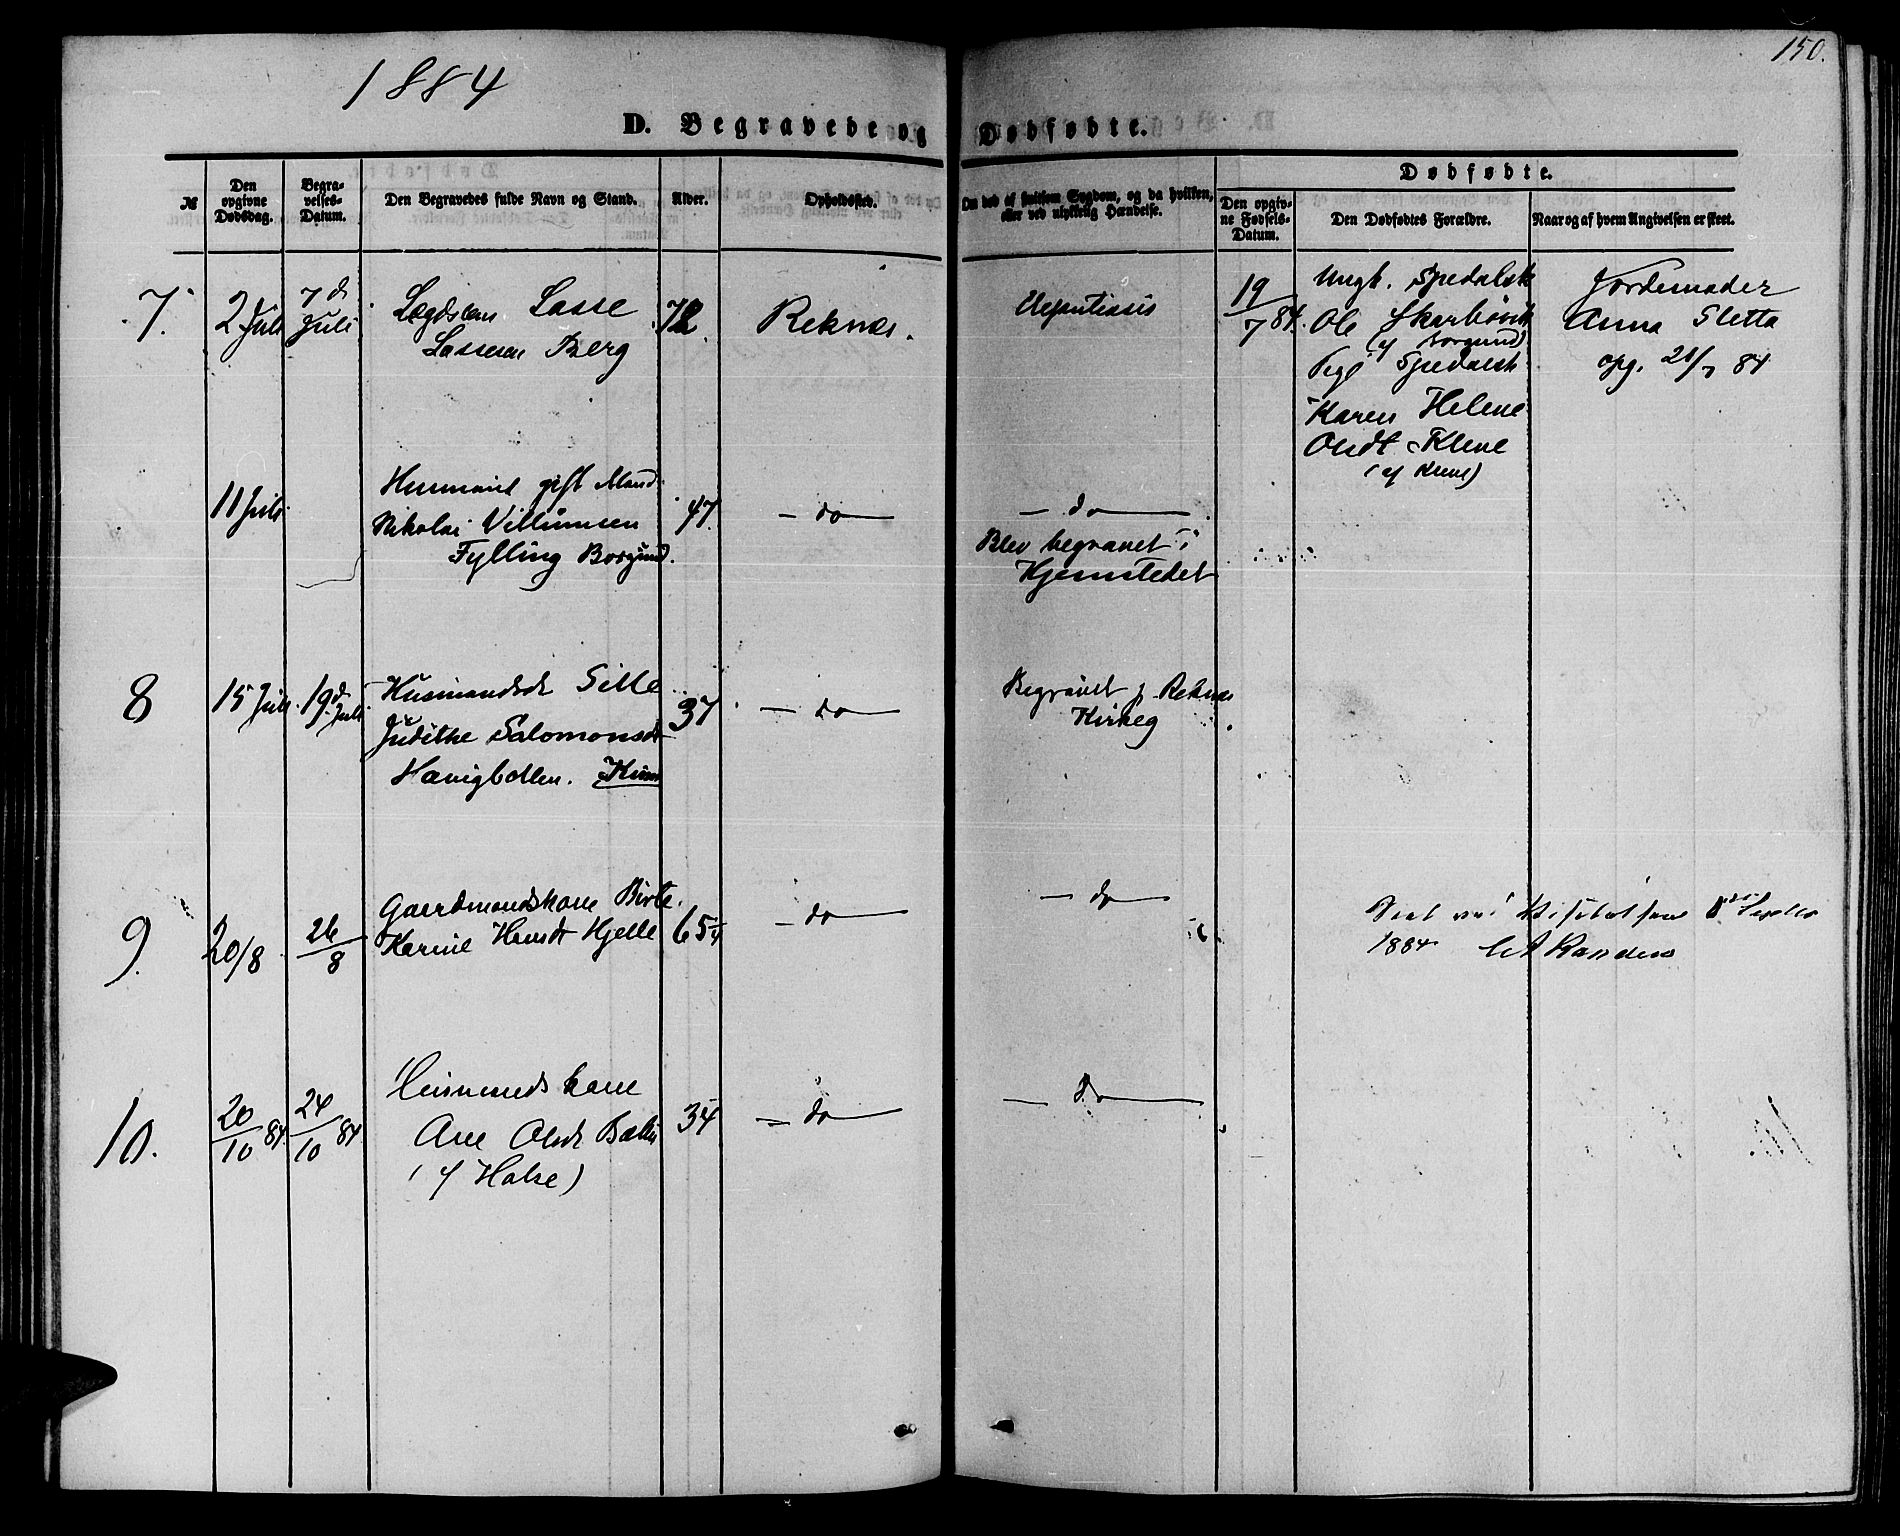 1884
150.
D. Begravede og Dødfødte.
№
Den opgivne Dødsdag.
Begravelses-Datum.
Den Begravedes fulde Navn og Stand.
Alder.
Opholdssted.
Om død af smitsom Sygdom, og da hvilken, eller ved ulykkelig Hændelse.
Dødfødte.
Den opgivne Fødsels-Datum.
Den Dødfødtes Forældre.
Naar og af hvem Angivelsen er skeet.
7.
2 Juli
7 d Juli
Lægdslem Lasse
Lassesen Berg
72
Reknæs.
Elefantiasis
19/7 84.
Ungk. Spedalsk
Ole Skarbøvik
(af Borgund)
Pige Spedalsk
Karen Helene
Olsdt
Jordemoder
Anna Sletta
opg. 21/7 84
11 Juli
Husmand gift Mand
Nikolai Villumsen
Fylling Borgund.
47
- do -
- do -
Blev begravet i
Hjemstedet
8
15 Juli
19 d. Juli
Husmandsdt Sille
Judithe Salomonsdt
37
- do -
Begravet p. Reknæs
Kirkeg
9.
20/8
26/8
Gaardmandskone Birte
Karine Hansdt Hjelle
65
- do -
- do -
Seet ved Visitatsen
1884
10.
20/10 84
24/10 84
Husmandskone
Ane Olsdt
(af Halse)
34
- do -
- do -